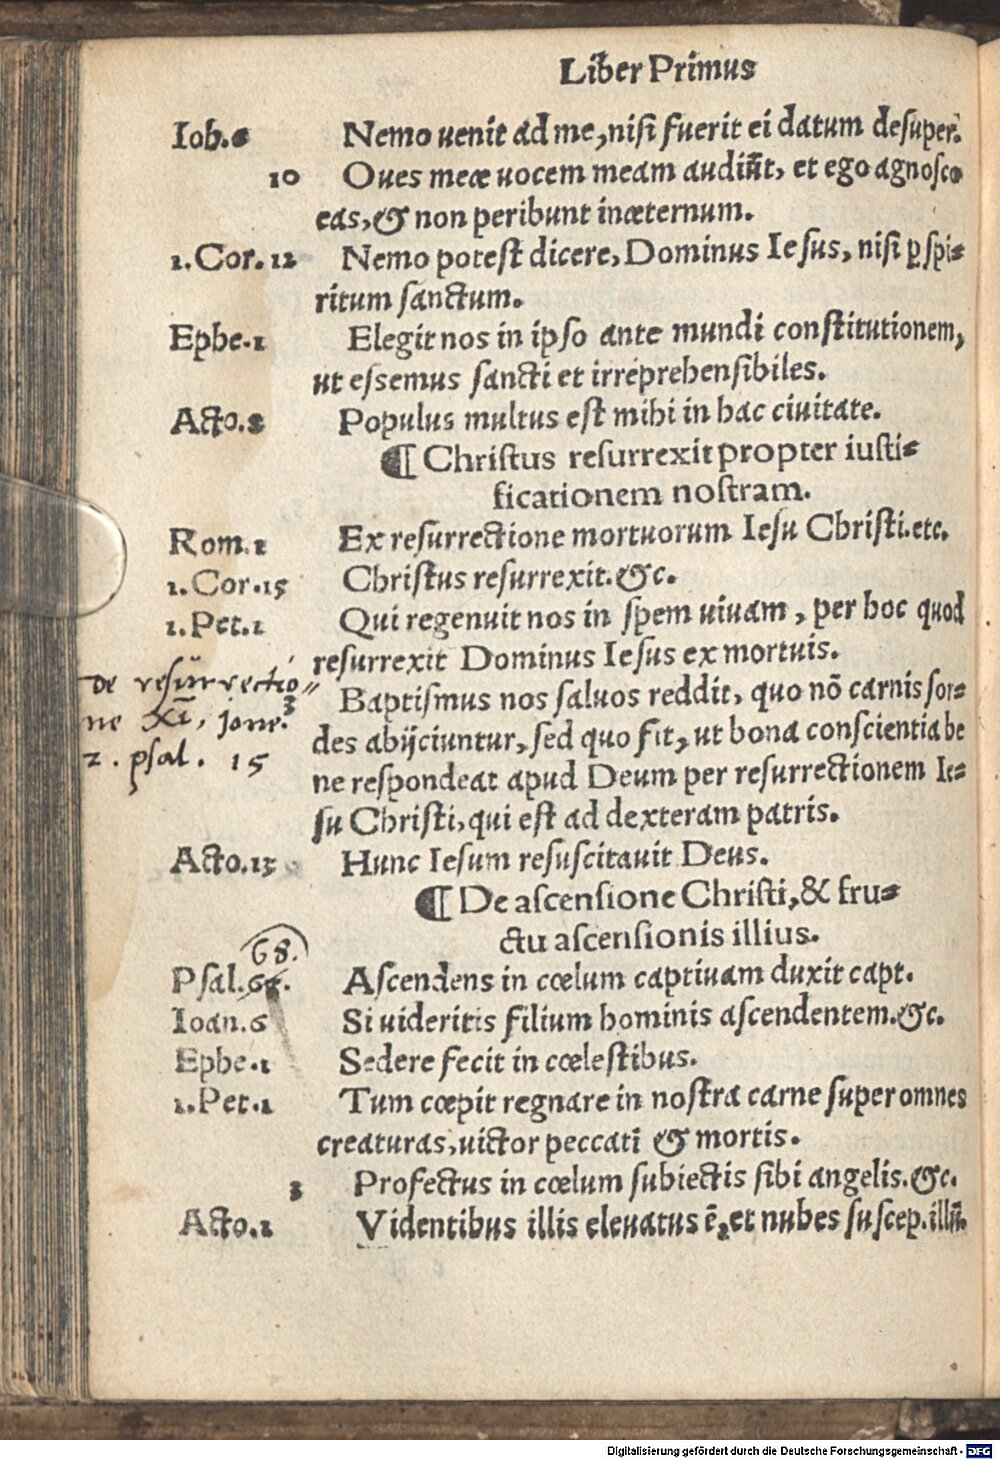 Liber Primus
Ioh.6 Nemo uenit ad me, nisi fuerit ei datum desuper.
10 Oues meæ uocem meam audiūt, et ego agnosco
eas, & non peribunt inæternum.
1.Cor.12 Nemo potest dicere, Dominus Iesus, nisi ꝑ spi-
ritum sanctum.
Ephe.1 Elegit nos in ipso ante mundi constitutionem,
ut essemus sancti et irreprehensibiles.
Acto.8 Populus multus est mihi in hac ciuitate.
¶ Christus resurrexit propter iusti-
ficationem nostram.
Rom.1 Ex resurrectione mortuorum Iesu Christi.etc.
1.Cor.15 Christus resurrexit.&c.
1.Pet.1 Qui regenuit nos in spem uiuam, per hoc quod
resurrexit Dominus Iesus ex mortuis.
de resurrectio
ne Xī, ione. 3
2. psal. 15
Baptismus nos saluos reddit, quo nō carnis sor-
des abijciuntur, sed quo fit, ut bona conscientia be
ne respondeat apud Deum per resurrectionem Ie-
su Christi, qui est ad dexteram patris.
Acto.13 Hunc Iesum resuscitauit Deus.
¶ De ascensione Christi, & fru-
ctu ascensionis illius.
68.
Psal. Ascendens in cœlum captiuam duxit capt.
Ioan.6 Si uideritis filium hominis ascendentem.&c.
Ephe.1 Sedere fecit in cœlestibus.
1.Pet.1 Tum cœpit regnare in nostra carne super omnes
creaturas, uictor peccati & mortis.
3 Profectus in cœlum subiectis sibi angelis.&c.
Acto.1 Videntibus illis eleuatus ē, et nubes suscep.illū.
Digitalisierung gefördert durch die Deutsche Forschungsgemeinschaft - DFG